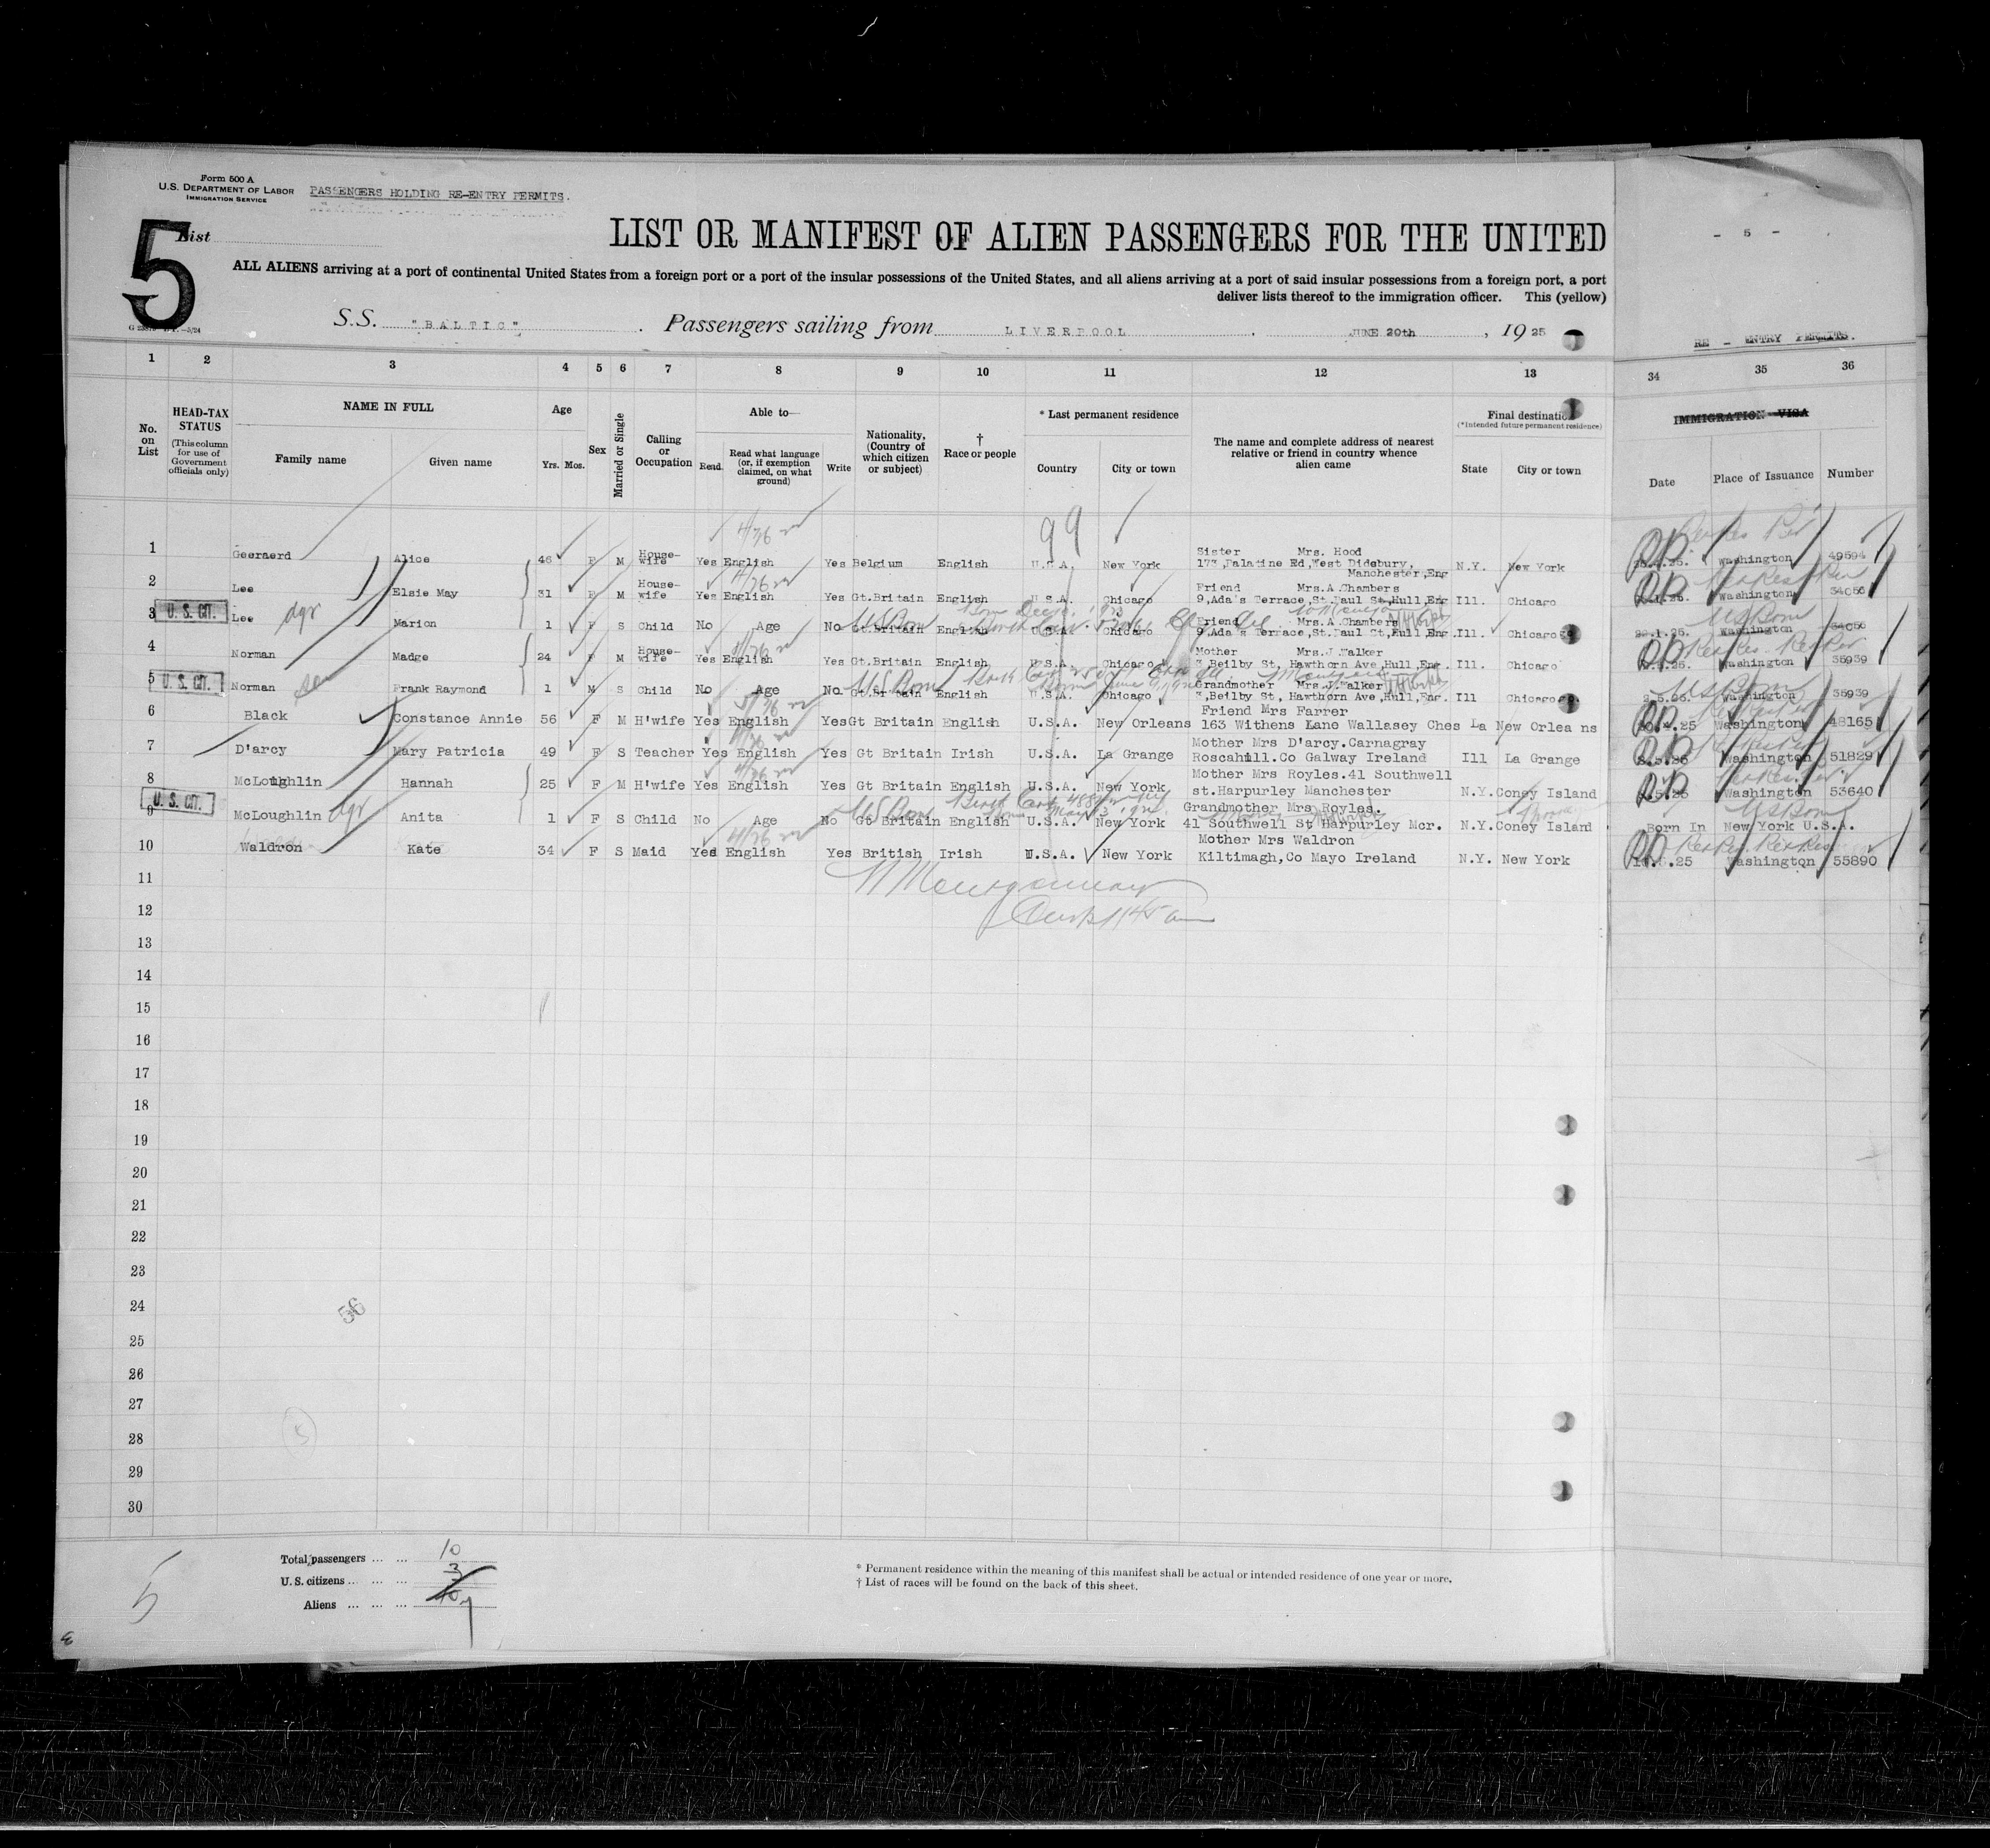 Form 500 A
U.S. DEPARTMENT OF LABOR
IMMIGRATION SERVICE
PASSENGERS HOLDING RE-ENTRY PERMITS.
5
List
LIST OR MANIFEST OF ALIEN PASSENGERS FOR THE UNITED
- 5 -
ALL ALIENS arriving at a port of continental United States from a foreign port or a port of the insular possessions of the United States, and all aliens arriving at a port of said insular possessions from a foreign port, a port
deliver lists thereof to the immigration officer. This (yellow)
S.S. "BALTIC" . Passengers sailing from LIVERPOOL . JUNE 20th , 1925
RE - ENTRY PERMITS.
1 2 3 4 5 6 7 8 9 10 11 12 13 34 35 36
No. on List
HEAD-TAX STATUS
(This column for use of Government officials only)
NAME IN FULL
Family name Given name
Age
Yrs. Mos.
Sex
Married or Single
Calling or Occupation
Able to—
Read. Read what language (or, if exemption claimed, on what ground) Write
Nationality, (Country of which citizen or subject)
† Race or people
* Last permanent residence
Country City or town
The name and complete address of nearest relative or friend in country whence alien came
Final destination
(*Intended future permanent residence)
State City or town
IMMIGRATION VISA
Date Place of Issuance Number
99
1 Geeraerd Alice 46 F M House-wife Yes English Yes Belgium English U.S.A. New York Sister Mrs. Hood
173,Palatine Rd,West Didsbury, Manchester,Eng N.Y. New York Washington 49594
2 Lee Elsie May 31 F M House-wife Yes English Yes Gt.Britain English U.S.A. Chicago Friend Mrs.A.Chambers
9,Ada's Terrace,St.Paul St,Hull,Eng Ill. Chicago Washington 34056
3 U.S. CIT. Lee dgr Marion 1 F S Child No Age No Gt.Britain English U.S.A. Chicago Friend Mrs.A.Chambers
US Born
9,Ada's Terrace,St.Paul St,Hull,Eng. Ill. Chicago Washington 34056
US Born
4 Norman Madge 24 F M House-wife Yes English Yes Gt.Britain English U.S.A. Chicago Mother Mrs.J.Walker
3,Beilby St, Hawthorn Ave,Hull,Eng. Ill. Chicago Washington 35939
5 U.S. CIT. Norman son Frank Raymond 1 M S Child No Age No Gt.Britain English U.S.A. Chicago Grandmother Mrs.J.Walker
US Born
3,Beilby St, Hawthorn Ave,Hull,Eng. Ill Chicago Washington 35939
US Born
6 Black Constance Annie 56 F M H'wife Yes English Yes Gt Britain English U.S.A. New Orleans Friend Mrs Farrer
163 Withens Lane Wallasey Ches La New Orlea ns Washington 48165
7 D'arcy Mary Patricia 49 F S Teacher Yes English Yes Gt Britain Irish U.S.A. La Grange Mother Mrs D'arcy.Carnagray
Roscahill.Co Galway Ireland Ill La Grange Washington 51829
8 McLoughlin Hannah 25 F M H'wife Yes English Yes Gt Britain English U.S.A. New York Mother Mrs Royles.41 Southwell
st.Harpurley Manchester N.Y. Coney Island Washington 53640
9 U.S. CIT. McLoughlin dgr Anita 1 F S Child No Age No Gt Britain English U.S.A. New York Grandmother Mrs Royles.
US Born
41 Southwell St Harpurley Mcr. N.Y. Coney Island Born In New York U.S.A.
US Born
10 Waldron Kate 34 F S Maid Yes English Yes British Irish U.S.A. New York Mother Mrs Waldron
Kiltimagh,Co Mayo Ireland N.Y. New York Washington 55890
11
12
13
14
15
16
17
18
19
20
21
22
23
24
25
26
27
28
29
30
56
5
Total passengers ... ... 10
U. S. citizens ... ... ... 3
Aliens ... ... ... 7
* Permanent residence within the meaning of this manifest shall be actual or intended residence of one year or more.
† List of races will be found on the back of this sheet.